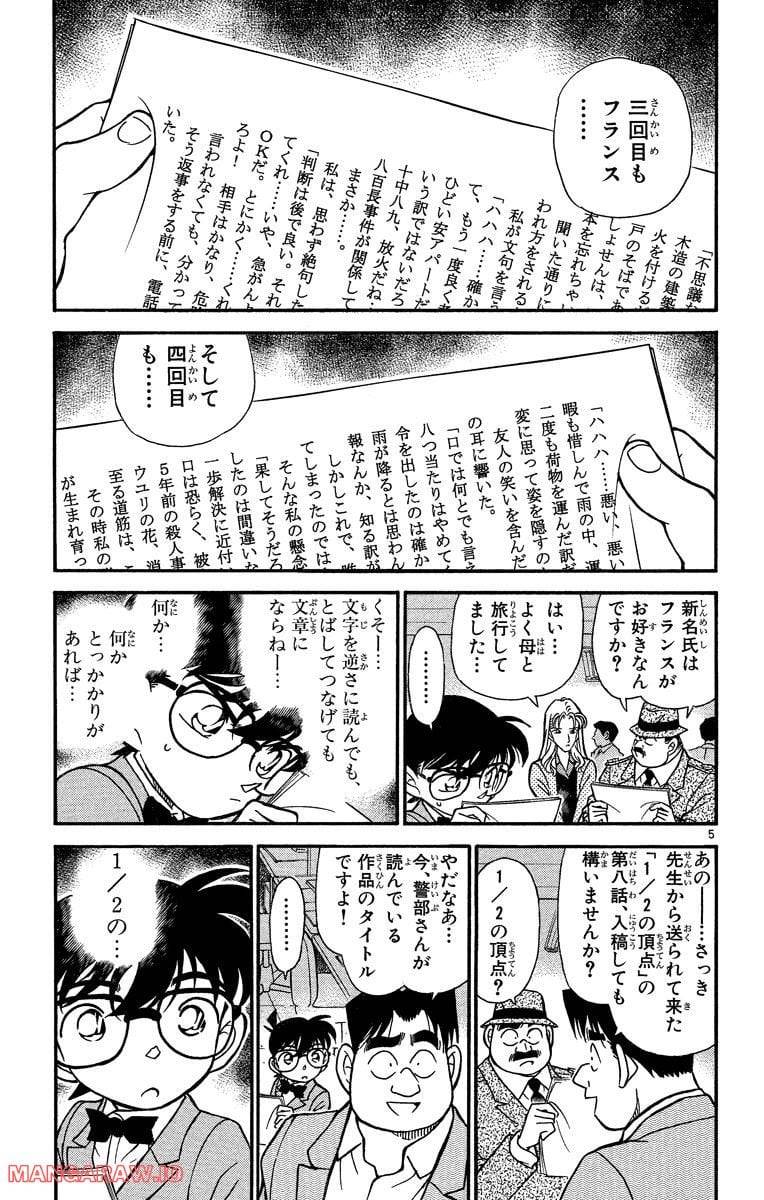 三回目も
フランス
……
「不思議な
木造の建築
火を付ける
戸のそばであ
しょせんは、
本を忘れちゃい
聞いた通りに
われ方をされる
私が文句を言う
「ハハハ……確か
て、もう一度良く考
ひどい安アパートだ
いう訳ではないだろ
十中八九、放火だね…
八百長事件が関係して
まさか……。
私は、思わず絶句した
「判断は後で良い。それ
てくれ……いや、急がんと
OKだ。とにかく……くれ
ろよ! 相手はかなり、危険
言われなくても、分かって
そう返事をする前に、電話
いた。
そして
四回目
も……
「ハハハ……悪い、悪い
暇も惜しんで雨の中、運
二度も荷物を運んだ訳だ
変に思って姿を隠すの
友人の笑いを含んだ
の耳に響いた。
「口では何とでも言え
八つ当たりはやめてく
令を出したのは確か
雨が降るとは思わん
報なんか、知る訳が
しかしこれで、
てしまったのでは
そんな私の懸念
「果してそうだろ
したのは間違いな
一歩解決に近付い
口は恐らく、被
5年前の殺人事
ウユリの花、消
至る道筋は、こ
その時私の
が生まれ育っ
新名氏は
フランスが
お好きなん
ですか?
はい…
よく母と
旅行して
ました…
………
くそー…
文字を逆さに読んでも、
とばしてつなげても
文章に
ならねー…
何か…
何か
とっかかりが
あれば…
5
あの――…さっき
先生から送られて来た
「1/2の頂点」の
第八話、入稿しても
構いませんか?
1/2の頂点?
やだなあ…
今、警部さんが
読んでいる
作品のタイトル
ですよ!
………
1/2の…
MANGARAW.IO